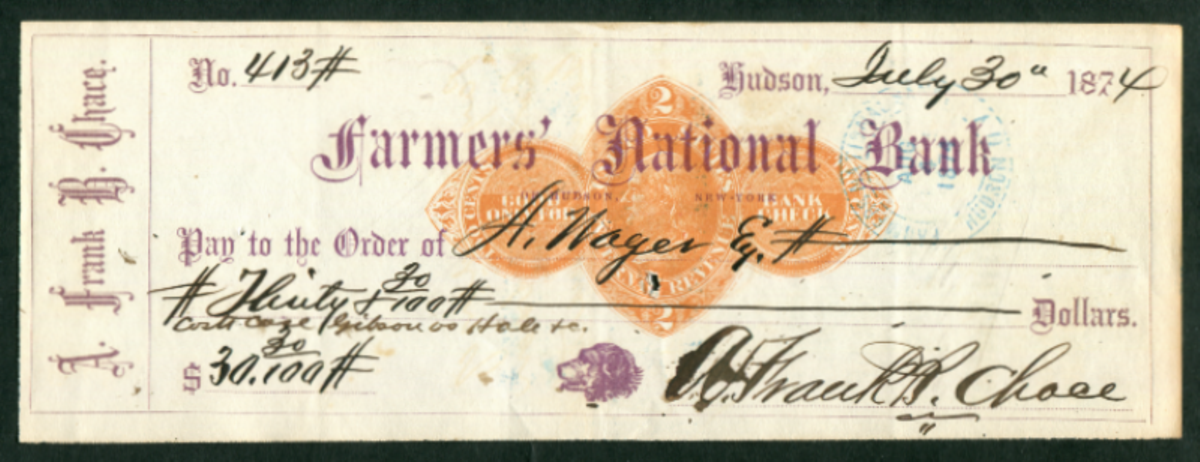 A. Frank B. Chace.
No. 413#
Hudson, July 30" 1874
Farmers' National Bank
OF HUDSON, NEW-YORK
2
BANK
CHECK
Pay to the Order of A. Wager Esq. #
# Thirty & 30/100 #
Dollars.
costs case Gibson vs Hale &c.
2
$ 30.30/100 #
A. Frank B. Chace